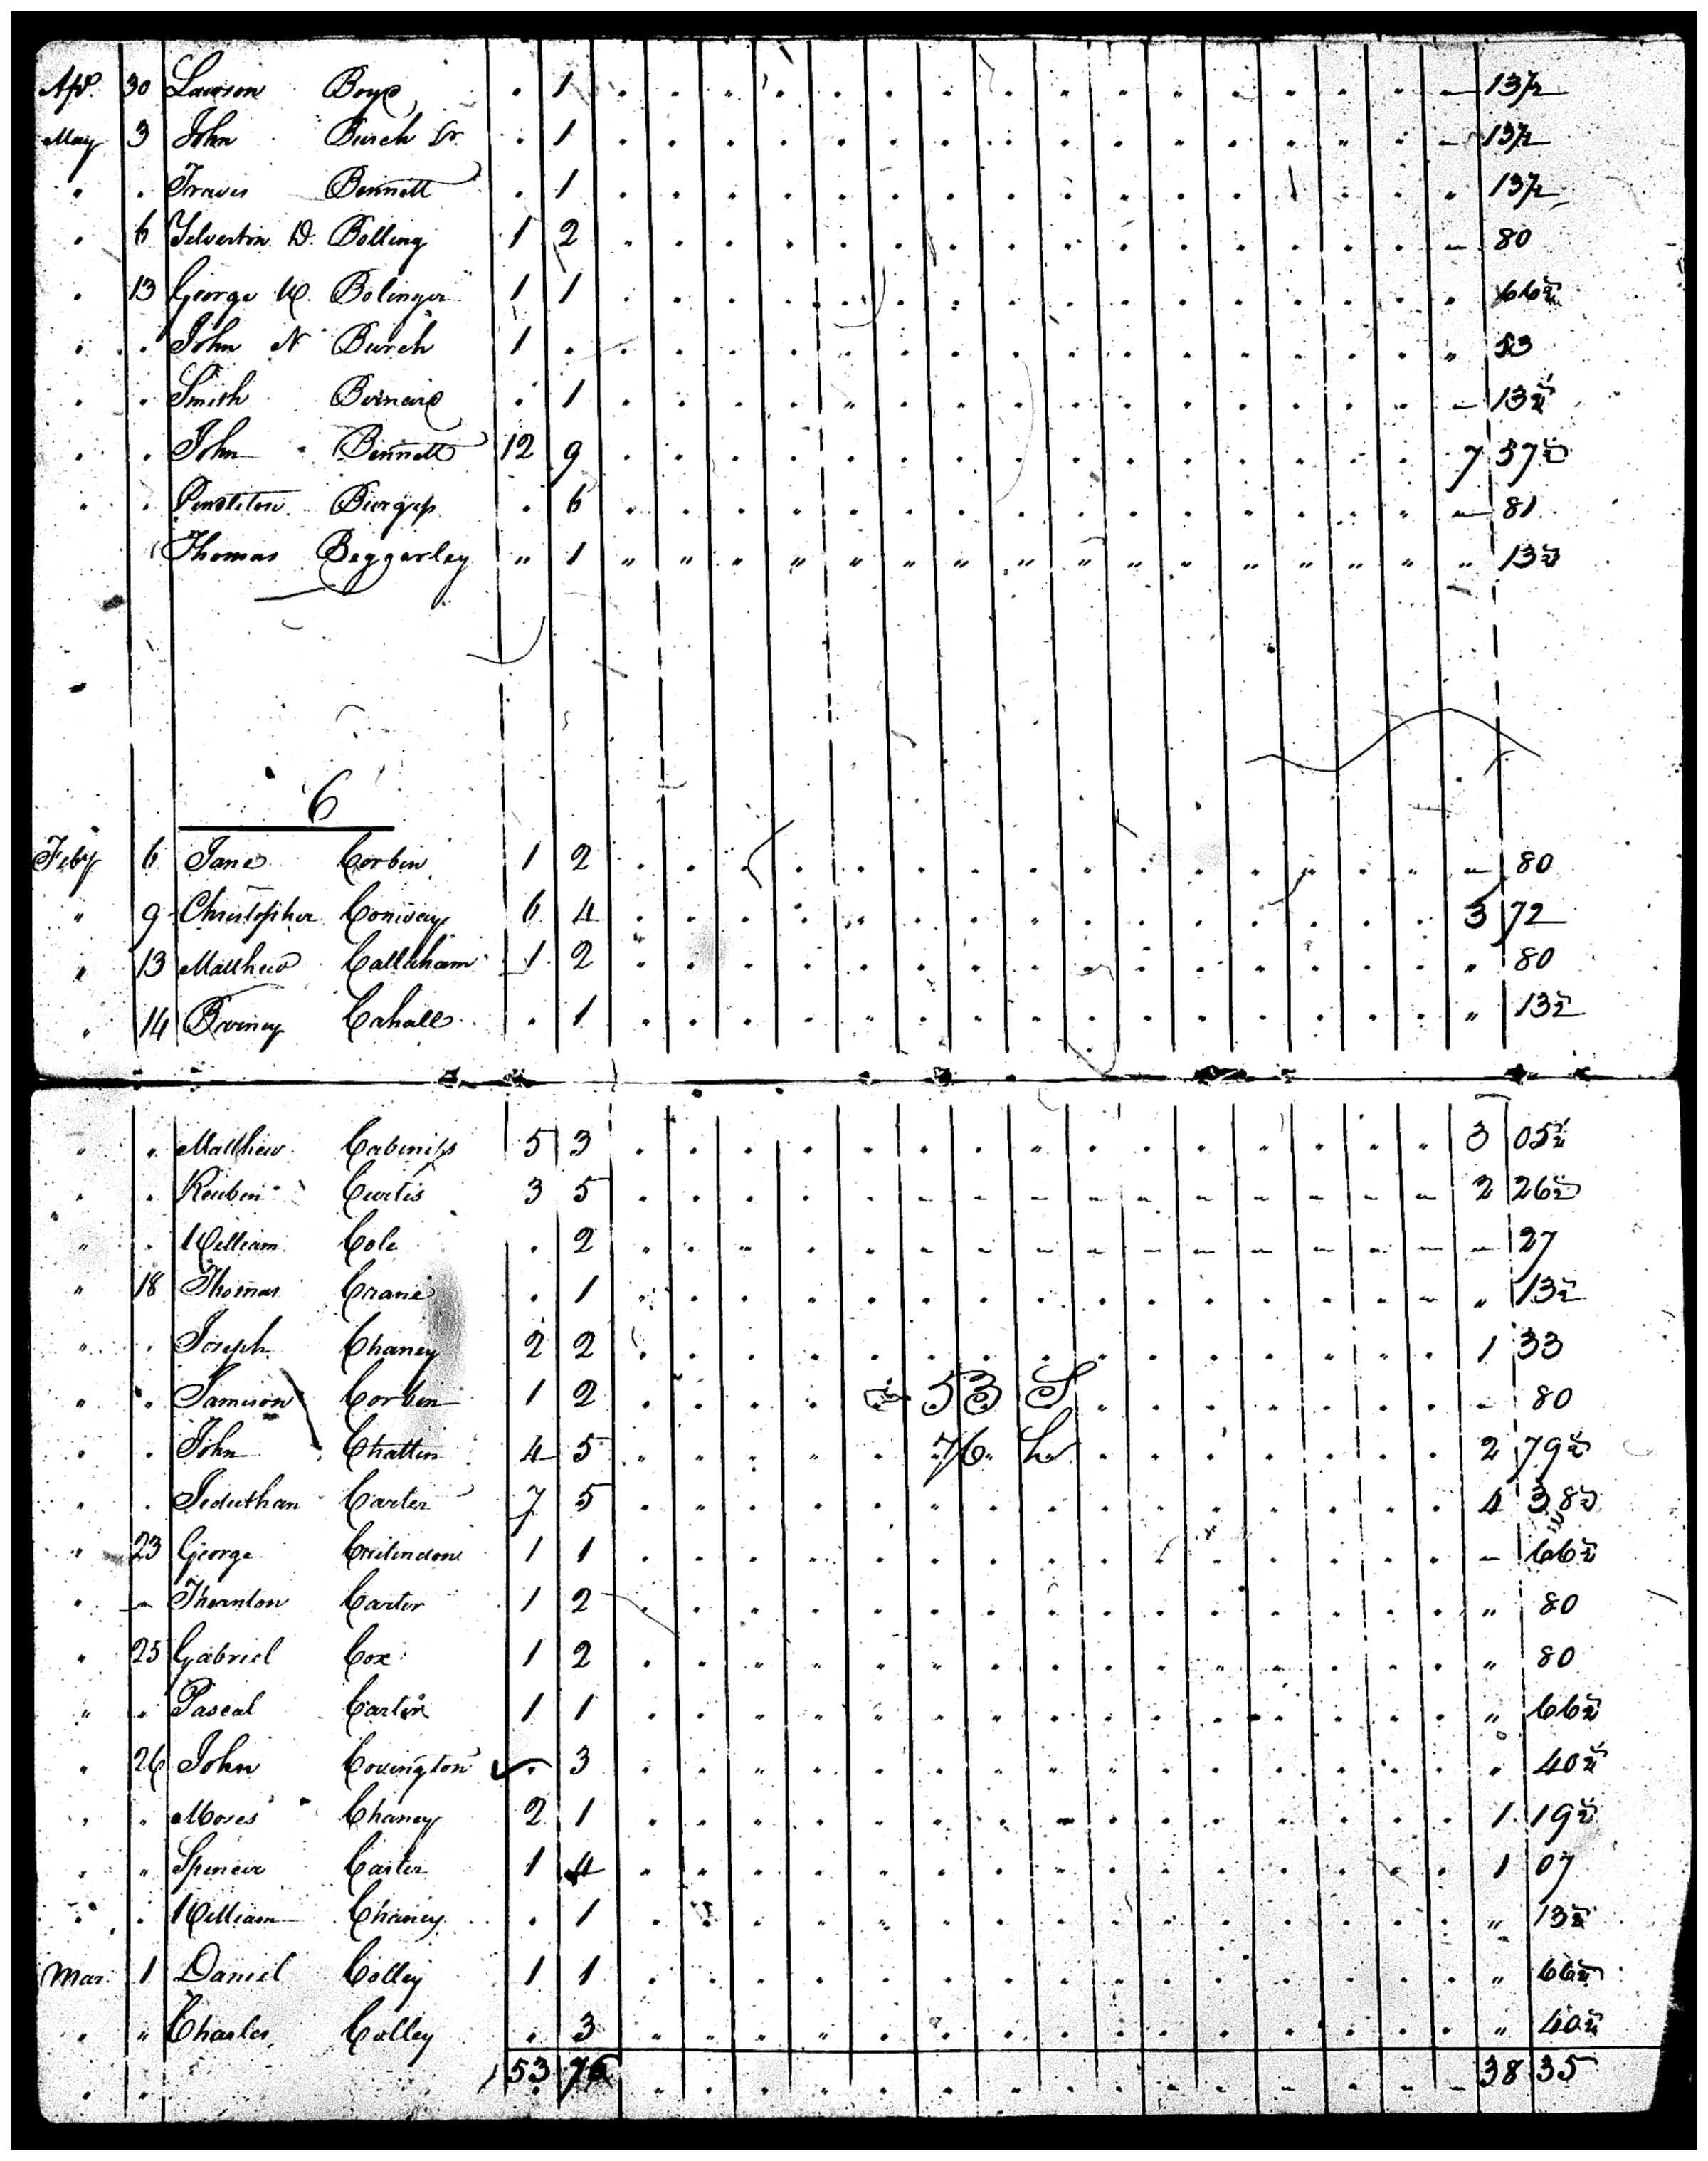 Apl. 30 Lawson Boyd . 1 . . . . . . . . . . . . . . . — 13½
May 3 John Burch Sr. . 1 . . . . . . . . . . . . . . . — 13½
" . Travis Bennett . 1 . . . . . . . . . . . . . . . " 13½
" 6 Yelverton D. Bolling 1 2 . . . . . . . . . . . . . . . — 80
" 13 George W. Bolinger 1 1 . . . . . . . . . . . . . . . " 66½
" . John N Burch 1 . . . . . . . . . . . . . . . . " 53
" . Smith Bernard . 1 . . . . . . . . . . . . . . . — 13½
" . John Bennett 12 9 . . . . . . . . . . . . . . . 7 57½
" . Pendleton Burgess . 6 . . . . . . . . . . . . . . . — 81
Thomas Beggarley " 1 " " " " " " " " " " " " " " " " 13½
C
Feby 6 Jane Corbin 1 2 . . . . . . . . . . . . . . . — 80
" 9 Christopher Conway 6 4 . . . . . . . . . . . . . . . 3 72
" 13 Matthew Callaham 1 2 . . . . . . . . . . . . . . . " 80
" 14 Barney Cahall . 1 . . . . . . . . . . . . . . . " 13½
" " Matthew Cabiniss 5 3 . . . . . . . . . . . . . . . 3 05½
" " Reuben Curtis 3 5 . . . . . . . . . . . . . . . 2 26½
" " William Cole . 2 . . . . . . . . . . . . . . . — 27
" 18 Thomas Crane . 1 . . . . . . . . . . . . . . . " 13½
" . Joseph Chaney 2 2 . . . . . . . . . . . . . . . 1 33
" " Jamison Corbin 1 2 . . . . 53 S . . . . . . . — 80
" . John Chattin 4 5 . . . . . 76 h . . . . . . . 2 79½
" . Jeduthan Carter 7 5 . . . . . . . . . . . . . . . 4 38½
" 23 George Critendon 1 1 . . . . . . . . . . . . . . . — 66½
" — Thornton Carter 1 2 . . . . . . . . . . . . . . . " 80
" 25 Gabriel Cox 1 2 . . . . . . . . . . . . . . . " 80
" " Pascal Carter 1 1 . . . . . . . . . . . . . . . " 66½
" 26 John Covington ✓ . 3 . . . . . . . . . . . . . . . " 40½
" " Moses Chaney 2 1 . . . . . . . . . . . . . . . 1 19½
" " Spencer Carter 1 4 . . . . . . . . . . . . . . . 1 07
" . William Chaney . 1 . . . . . . . . . . . . . . . " 13½
Mar 1 Daniel Colley 1 1 . . . . . . . . . . . . . . . " 66½
" " Charles Colley . 3 . . . . . . . . . . . . . . . " 40½
" " 53 76 . . . . . . . . . . . . . . . 38 35